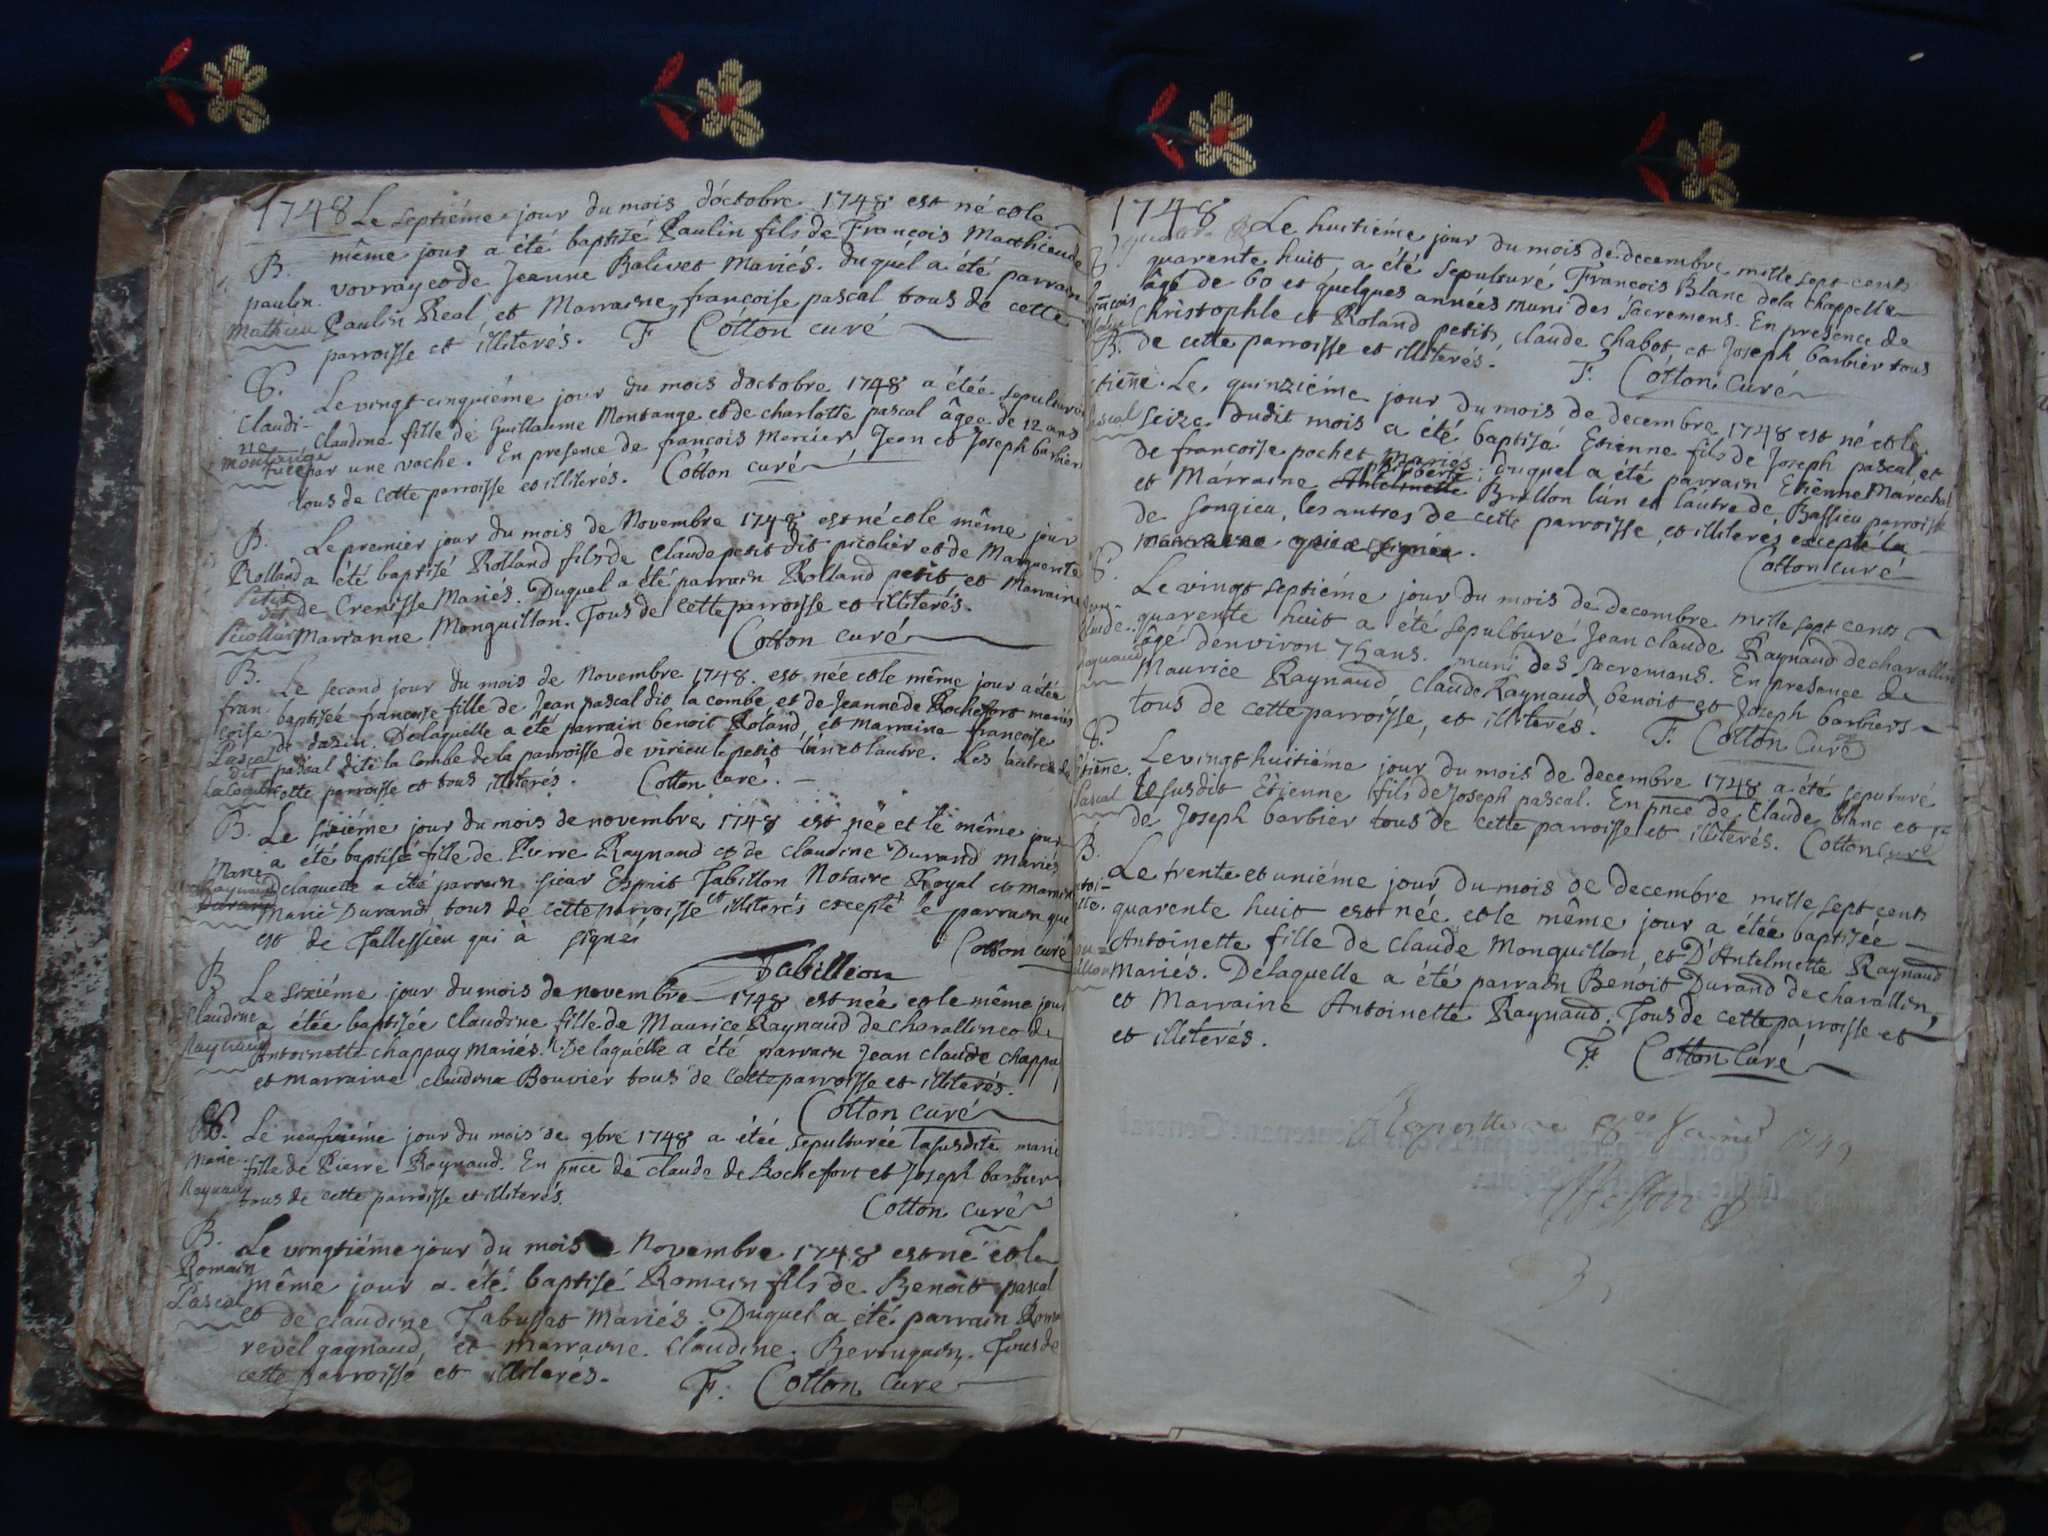 1748 Le septiéme jour du mois d'octobre 1748 est né et le
même jour a été baptisé Paulin fils de François Matthieu de
B. vovray et de Jeanne Balivet Mariés. duquel a été parrain
paulin Mathieu Paulin Real et Marraine françoise pascal tous de cette
parroisse et illiterés. F Cotton curé
S. Le vingt cinquiéme jour du mois d'octobre 1748 a étée sepulturée
Claudine Montange Claudine fille de Guillaume Montange et de charlotte pascal âgée de 12 ans
tuée par une vache. En presence de françois Mercier Jean et Joseph barbier
tous de cette parroisse et illiterés. Cotton curé
B. Le premier jour du mois de Novembre 1748 est né et le même jour
Rolland a été baptisé Rolland fils de Claude petit dit picolier et de Marguerite
Petit dit de Crenisse Mariés. Duquel a été parrain Rolland petit et Marraine
Picollier Marianne Monguillon. Tous de cette parroisse et illiterés.
Cotton curé
B. Le second jour du mois de Novembre 1748. est née et le même jour a étée
françoise baptisée françoise fille de Jean pascal dit la combe et de Jeanne de Rochefort mariés
Pascal de dazin. De laquelle a été parrain benoit Roland, et marraine françoise
dit pascal dite la Combe de la parroisse de virieu le petit l'un et l'autre. Les autres de
la Combe cette parroisse et tous illiterés. Cotton curé.
B. Le sixiéme jour du mois de novembre 1748 est née et le même jour
Marie a été baptisée fille de Pierre Raynaud et de claudine Durand Mariés
Raynaud Durand de laquelle a été parrain sieur Esprit Tabillon Notaire Royal et marraine
Marie Durand tous de cette parroisse et illiterés excepté le parrain qui
est de Tallessieu qui à signé
Tabillion Cotton curé
B Le sixiéme jour du mois de novembre 1748 est née et le même jour
Claudine a étée baptisée claudine fille de Maurice Raynaud de charallin et de
Raynaud Antoinette chappuy Mariés. De laquelle a été parrain Jean claude chappuy
et marraine claudine Bouvier tous de cette parroisse et illiterés.
Cotton curé
S. Le neufviéme jour du mois de 9bre 1748 a étée sepulturée la susdite marie
Marie fille de Pierre Raynaud. En pnce de claude de Rochefort et Joseph barbier
Raynaud tous de cette parroisse et illiterés.
Cotton curé
B. Le vingtiéme jour du mois Novembre 1748 est né et le
Romain même jour a été baptisé Romain fils de Benoit pascal
Pascal et de claudine Tabussat Mariés. Duquel a été parrain
revel gagnaud, et marraine Claudine. Tous de
cette parroisse et illiterés.
F. Cotton Curé
1748 Le huitiéme jour du mois de decembre mille sept cents
S quarente huit, a été sepulturé François Blanc de la chappelle
âgé de 60 et quelques années muni des Sacremens. En presence de
Christophle et Roland petit, claude chabot, et Joseph barbier tous
de cette parroisse et illiterés. F. Cotton Curé
B. Le quinziéme jour du mois de decembre 1748 est né et le
seize dudit mois a été baptisé Etienne fils de Joseph pascal, et
de francoise pochet Mariés. Duquel a été parrain Etienne Marechal
et Marraine Antelmette philiberte Brillon l'un et l'autre de Bassieu parroisse
de songieu, les autres de cette parroisse, et illiteres excepté la
marraine qui a signée.
Cotton curé
S. Le vingt septiéme jour du mois de decembre mille sept cents
quarente huit a été sepulturé Jean claude Raynaud de charallin
âgé d'environ 75 ans. muni des sacremens. En presence de
Maurice Raynaud, claude Raynaud, benoit et Joseph barbiers
tous de cette parroisse, et illiterés. F. Cotton Curé
S. Le vingt huitiéme jour du mois de decembre 1748 a été sepulturé
Etienne Pascal le susdit Etienne fils de Joseph pascal. En pnce de Claude blanc et
de Joseph barbier tous de cette parroisse et illiterés. Cotton curé
B. Le trente et uniéme jour du mois de decembre mille sept cents
quarente huit est née et le même jour a étée baptisée
Antoinette fille de claude Monguillon, et D'Antelmette Raynaud
Mariés. De laquelle a été parrain Benoit Durand de charallin,
et Marraine Antoinette Raynaud. Tous de cette parroisse et
et illiterés.
F. Cotton Curé
1749